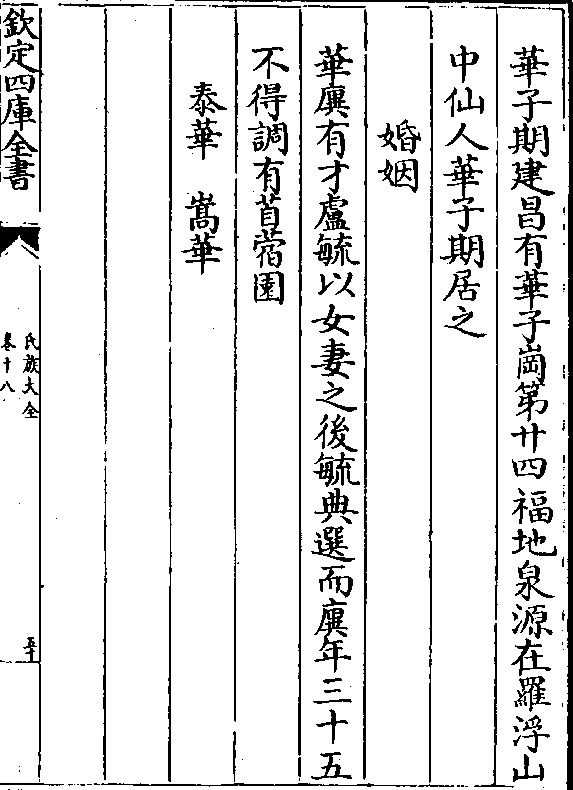 華子期建昌有華子崗第廿四福地泉源在羅浮山
中仙人華子期居之
婚姻
華廙有才盧毓以女妻之後毓典選而廙年三十五
不得調有苜蓿園
泰華 嵩華
欽定四庫全書
氏族大全
卷十八
五十